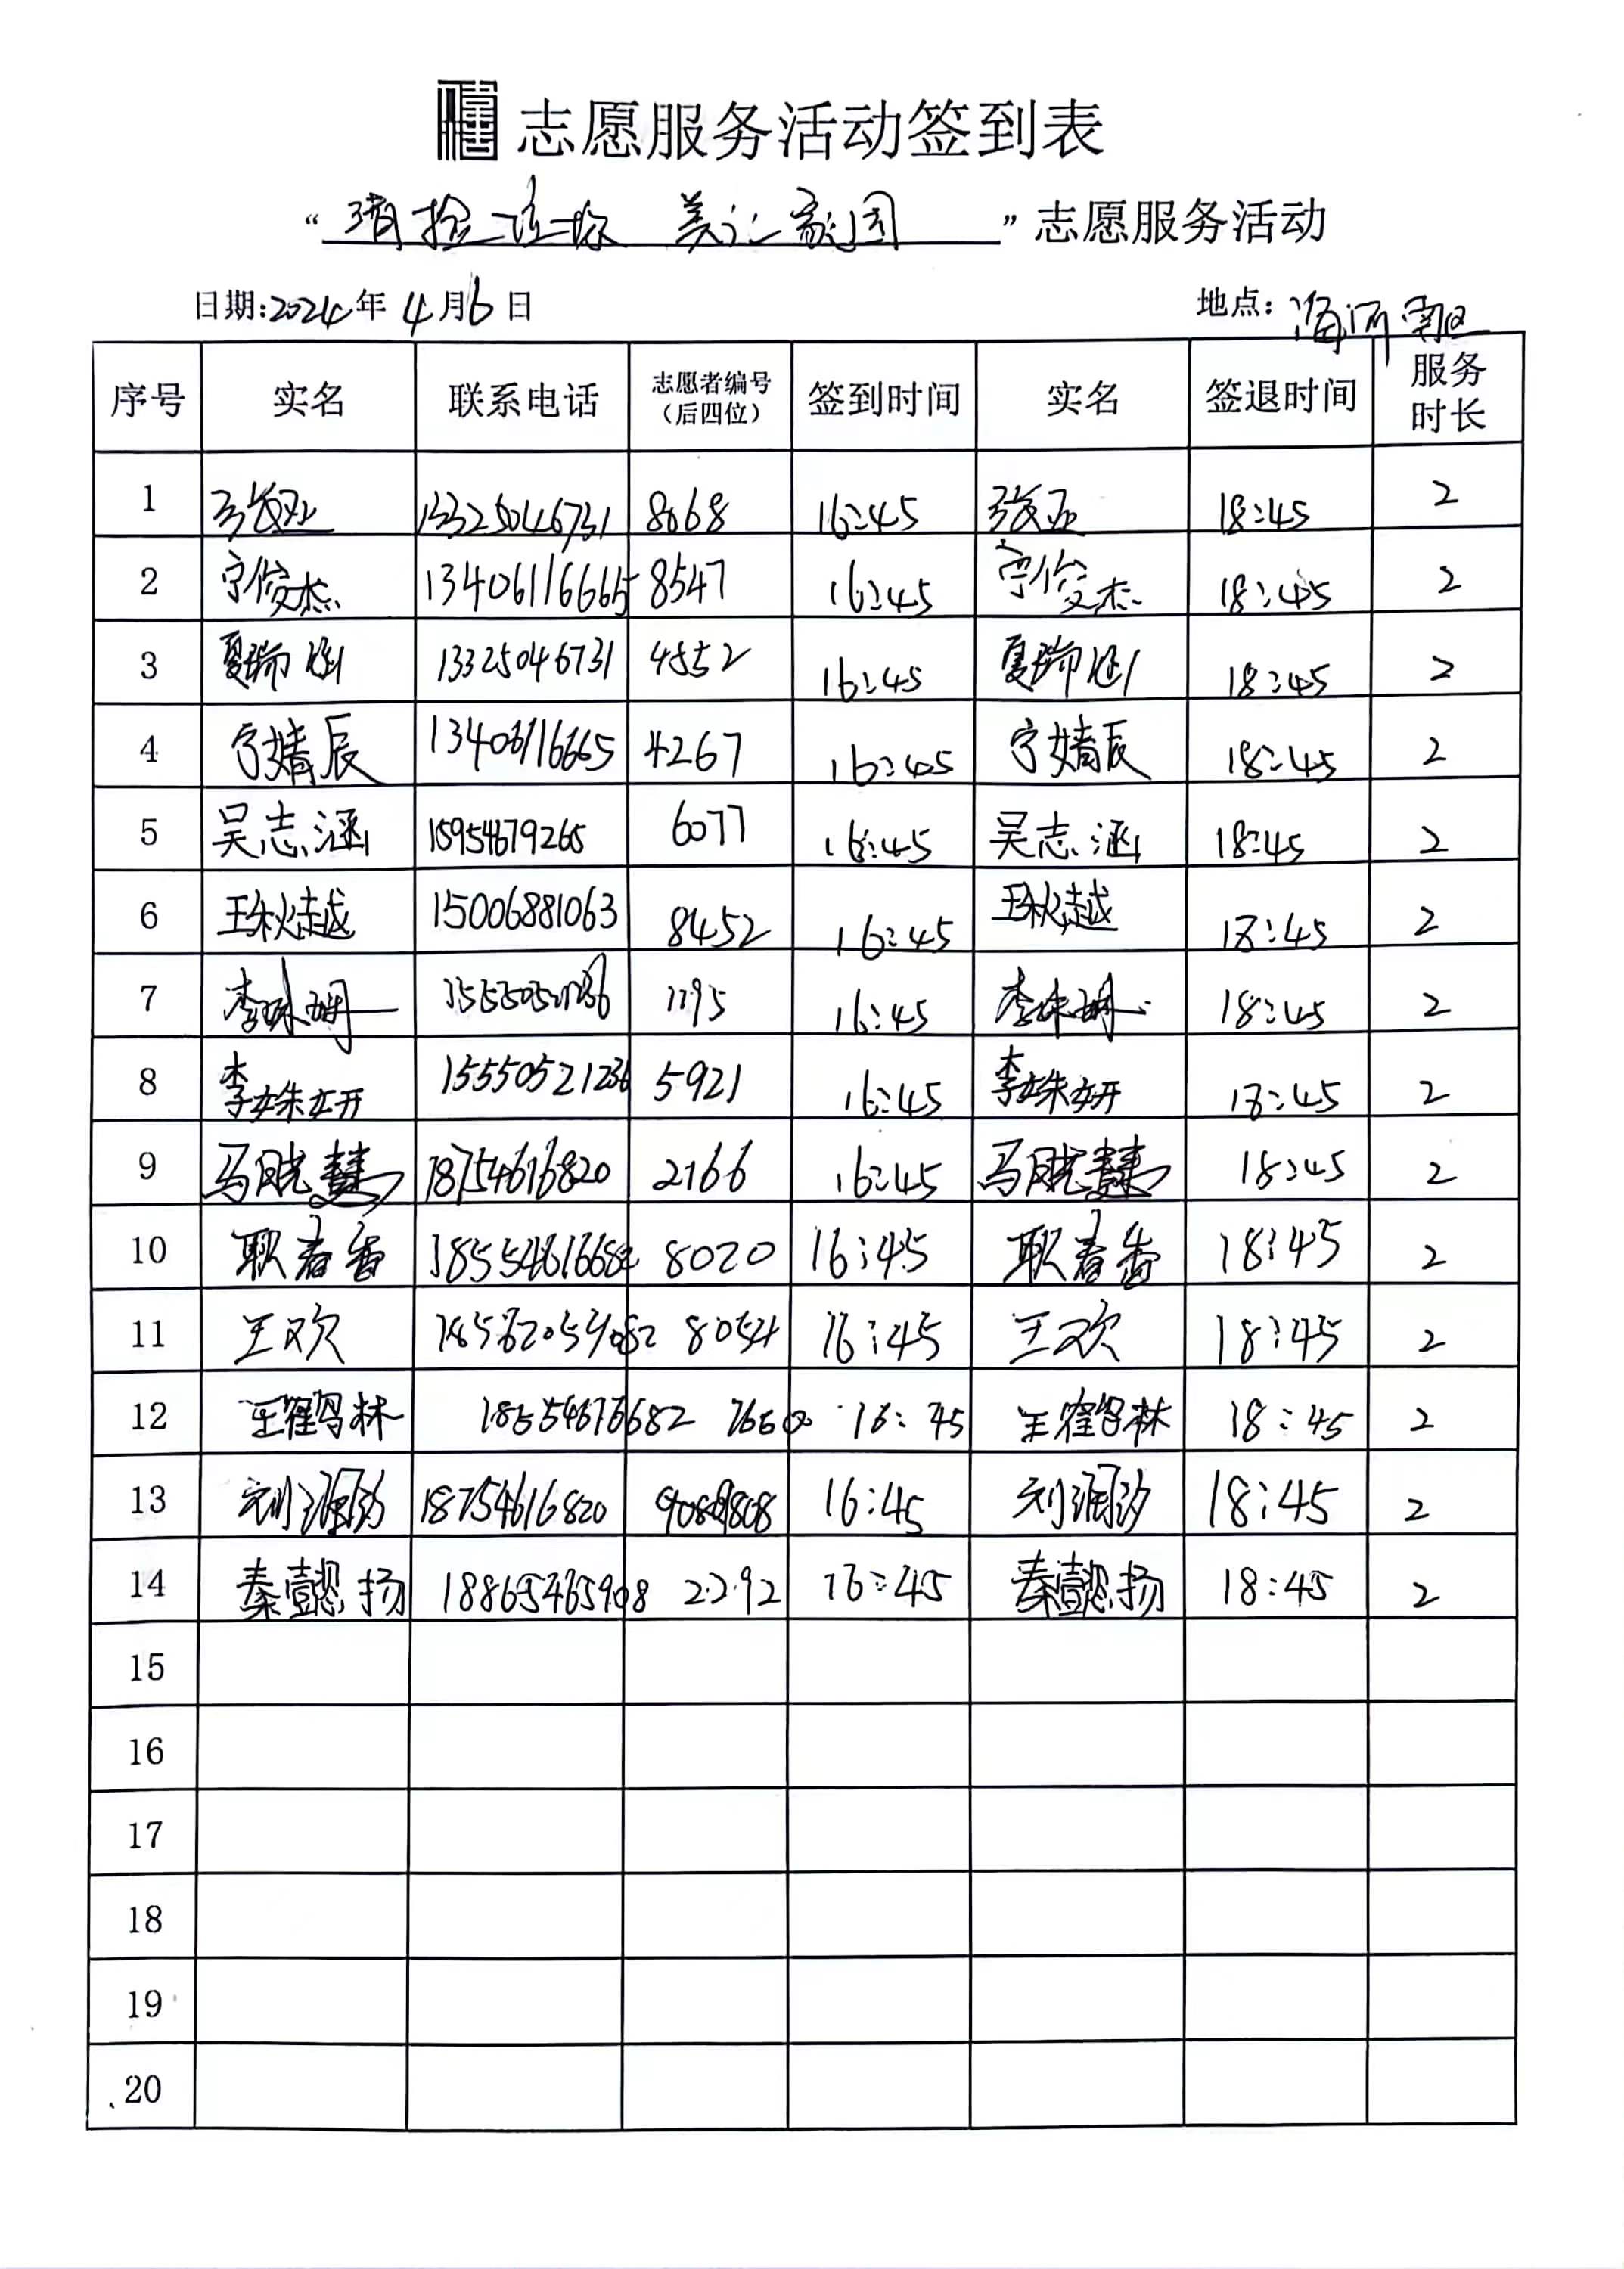 志愿服务活动签到表
“清捡垃圾 美汇家园”志愿服务活动
日期:2024年4月6日 地点:海河南区
序号 实名 联系电话 志愿者编号(后四位) 签到时间 实名 签退时间 服务时长
1 张亚 13325046731 8068 16:45 张亚 18:45 2
2 宁俊杰 13406116665 8547 16:45 宁俊杰 18:45 2
3 夏瑞涵 13325046731 4552 16:45 夏瑞涵 18:45 2
4 宁婧辰 13406116665 4267 16:45 宁婧辰 18:45 2
5 吴志涵 15954679265 6077 16:45 吴志涵 18:45 2
6 王秋越 15006881063 8452 16:45 王秋越 18:45 2
7 李姝娴 1195 16:45 李姝娴 18:45 2
8 李姝妍 15550521236 5921 16:45 李姝妍 18:45 2
9 马晓慧 18754616820 2166 16:45 马晓慧 18:45 2
10 耿春香 18554616682 8020 16:45 耿春香 18:45 2
11 王欢 18562059082 8054 16:45 王欢 18:45 2
12 18554616682 16:45 18:45 2
13 18754616820 9808 16:45 18:45 2
14 秦懿扬 18865465908 2292 16:45 秦懿扬 18:45 2
15
16
17
18
19
20